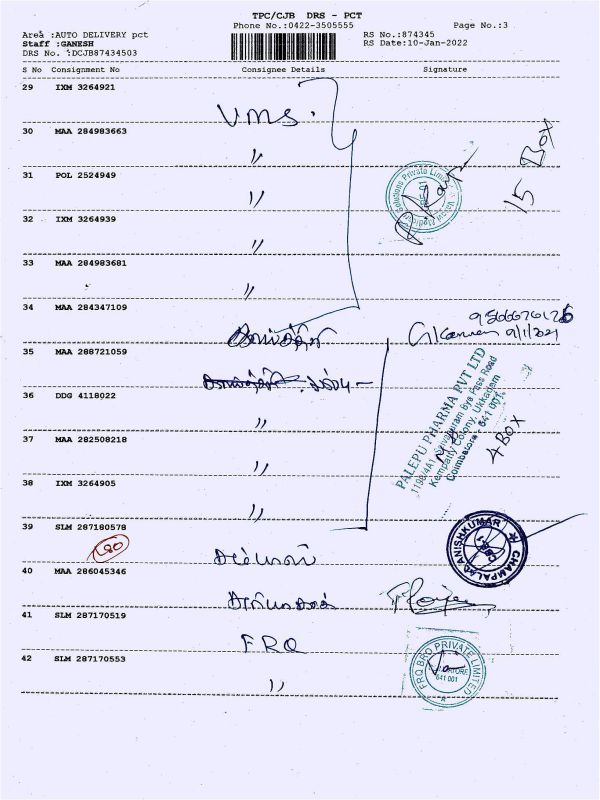 TPC/CJB DRS - PCT
Phone No.:0422-3505555
Page No.:3
Area :AUTO DELIVERY pct
RS No.:874345
Staff :GANESH
RS Date:10-Jan-2022
DRS No. :DCJB87434503
S No Consignment No Consignee Details Signature
29 IXM 3264921
VMS.
30 MAA 284983663
"
15 Box
31 POL 2524949
"
32 IXM 3264939
"
33 MAA 284983681
"
34 MAA 284347109
9/1/2021
35 MAA 288721059
PALEPU PHARMA PVT LTD
Bye Pass Road
Colony, Ukkadam
Coimbatore - 641 001.
4 BOX
36 DDG 4118022
"
37 MAA 282508218
"
38 IXM 3264905
"
39 SLM 287180578
CHAMPALAL ANISHKUMAR
40 MAA 286045346
41 SLM 287170519
FRQ
FRQ BRO PRIVATE LIMITED
641 001
42 SLM 287170553
"